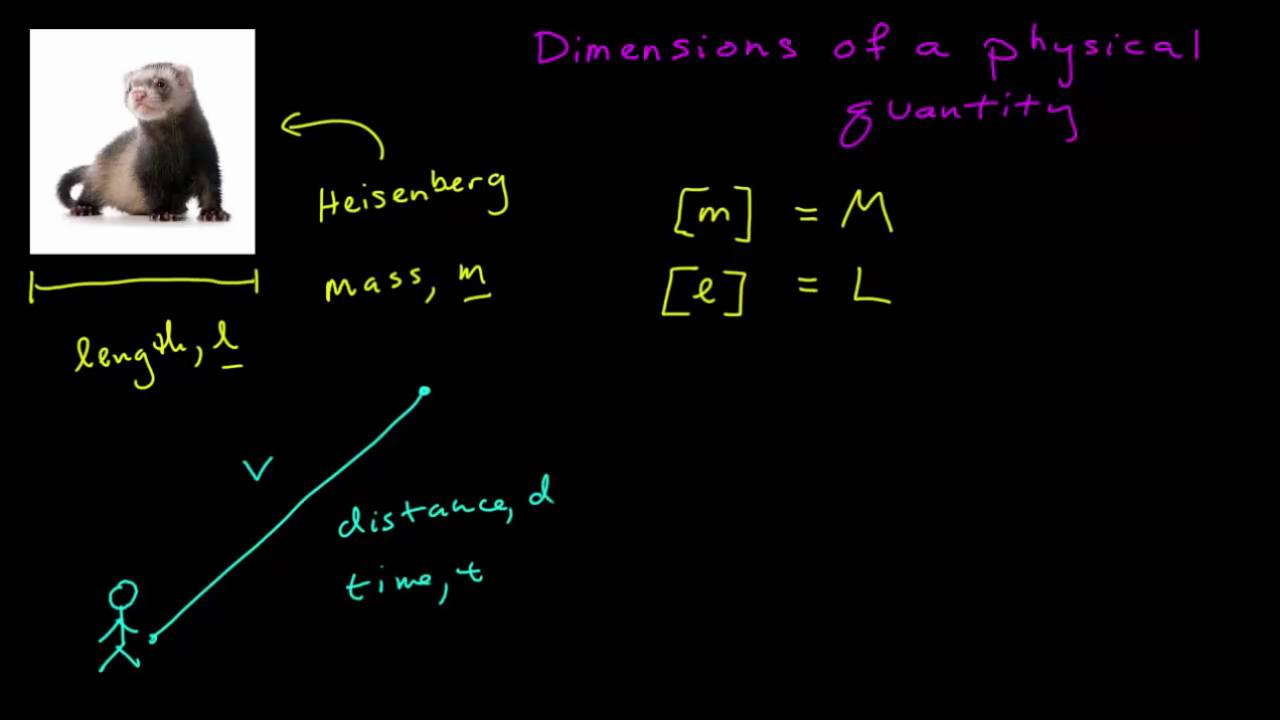 Dimensions of a physical
quantity
Heisenberg
mass, m
length, l
[m] = M
[l] = L
V
distance, d
time, t